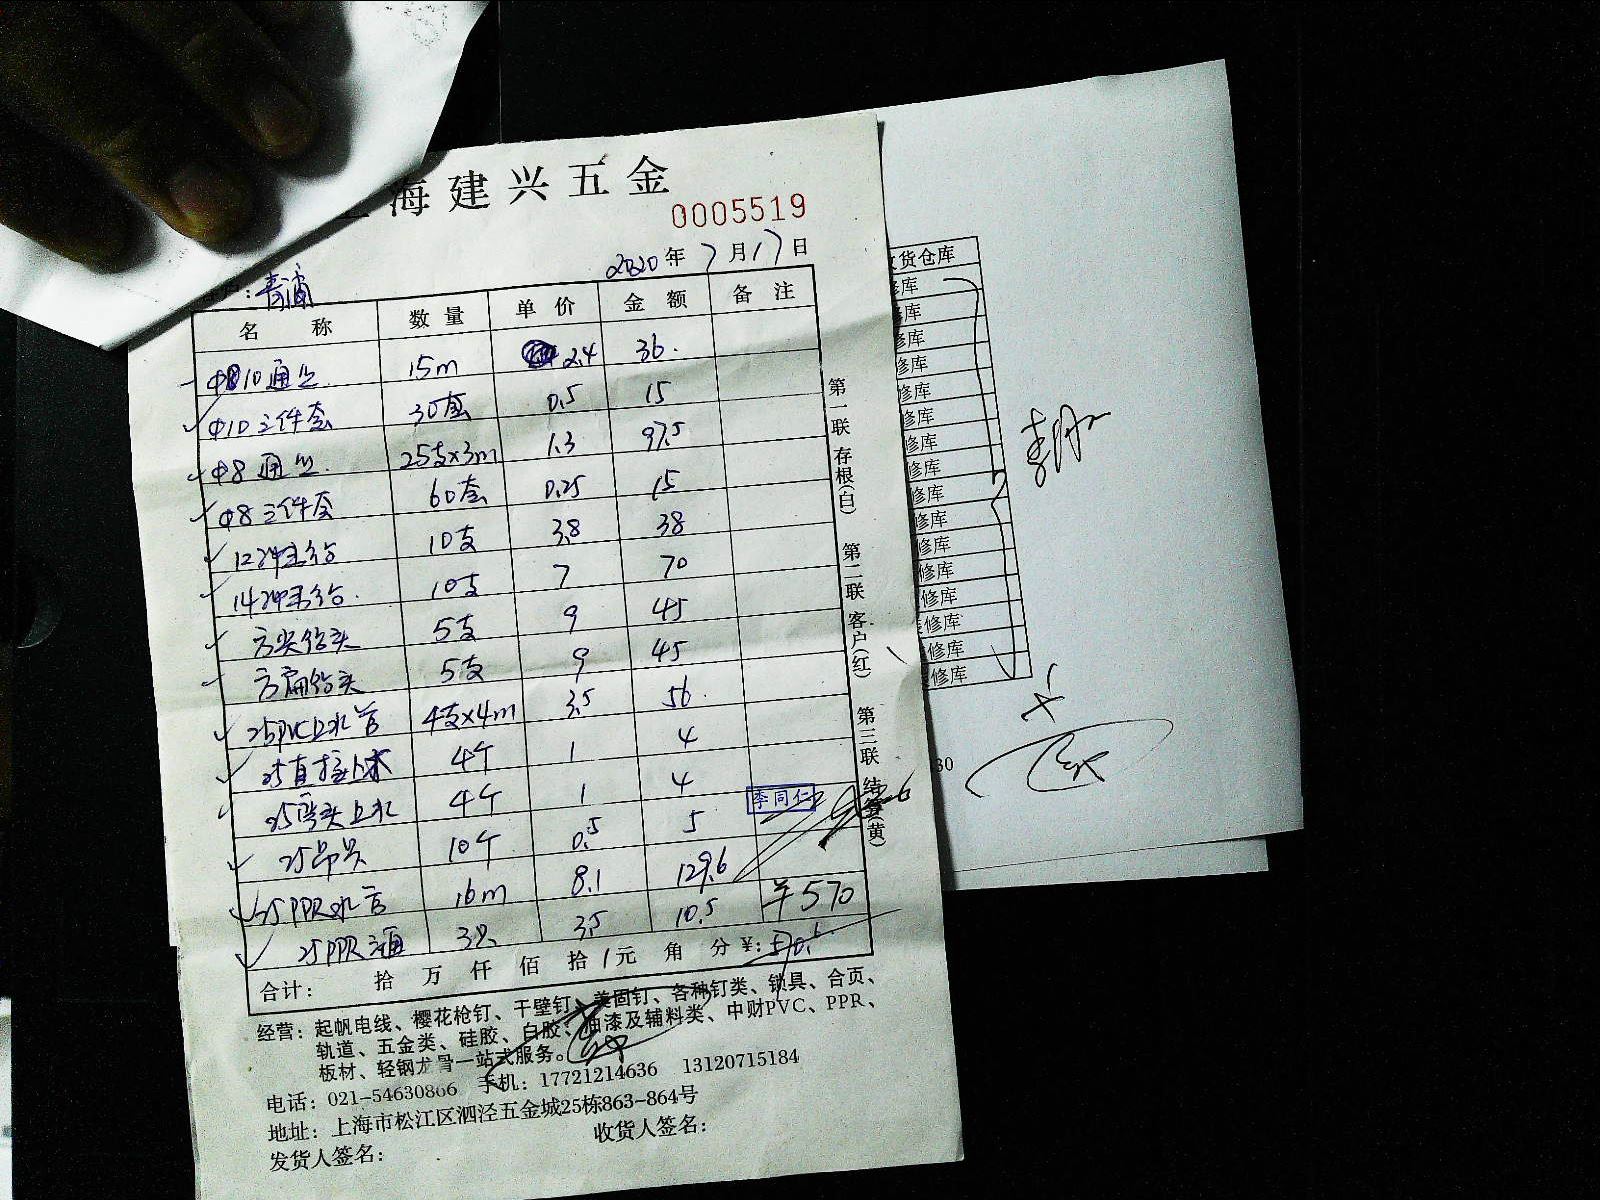 海建兴五金
0005519
2020年7月17日
:青浦
名 称 数 量 单 价 金 额 备 注
Φ10通丝 15m 2.4 36.
Φ10三件套 30套 0.5 15
Φ8通丝. 25支×3m 1.3 97.5
Φ8三件套 60套 0.25 15
12冲击钻 10支 3.8 38
14冲击钻. 10支 7 70
方尖钻头 5支 9 45
方扁钻头 5支 9 45
25PVC上水管 4支×4m 3.5 56.
25直接上水 4个 1 4
25弯头上水 4个 1 4
李同仁
25吊只 10个 0.5 5
25PPR水管 16m 8.1 129.6
¥570
25PPR三通 3只 3.5 10.5
合计: 拾 万 仟 佰 拾 元 角 分 ¥:
第一联 存根(白) 第二联 客户(红) 第三联 结算(黄)
经营:起帆电线、樱花枪钉、干壁钉、美固钉、各种钉类、锁具、合页、
轨道、五金类、硅胶、白胶、油漆及辅料类、中财PVC、PPR、
板材、轻钢龙骨一站式服务。
电话:021-54630866 手机:17721214636 13120715184
地址:上海市松江区泗泾五金城25栋863-864号
发货人签名: 收货人签名:
货仓库
修库
修库
修库
修库
修库
修库
修库
修库
修库
修库
修库
修库
修库
修库
修库
修库
30